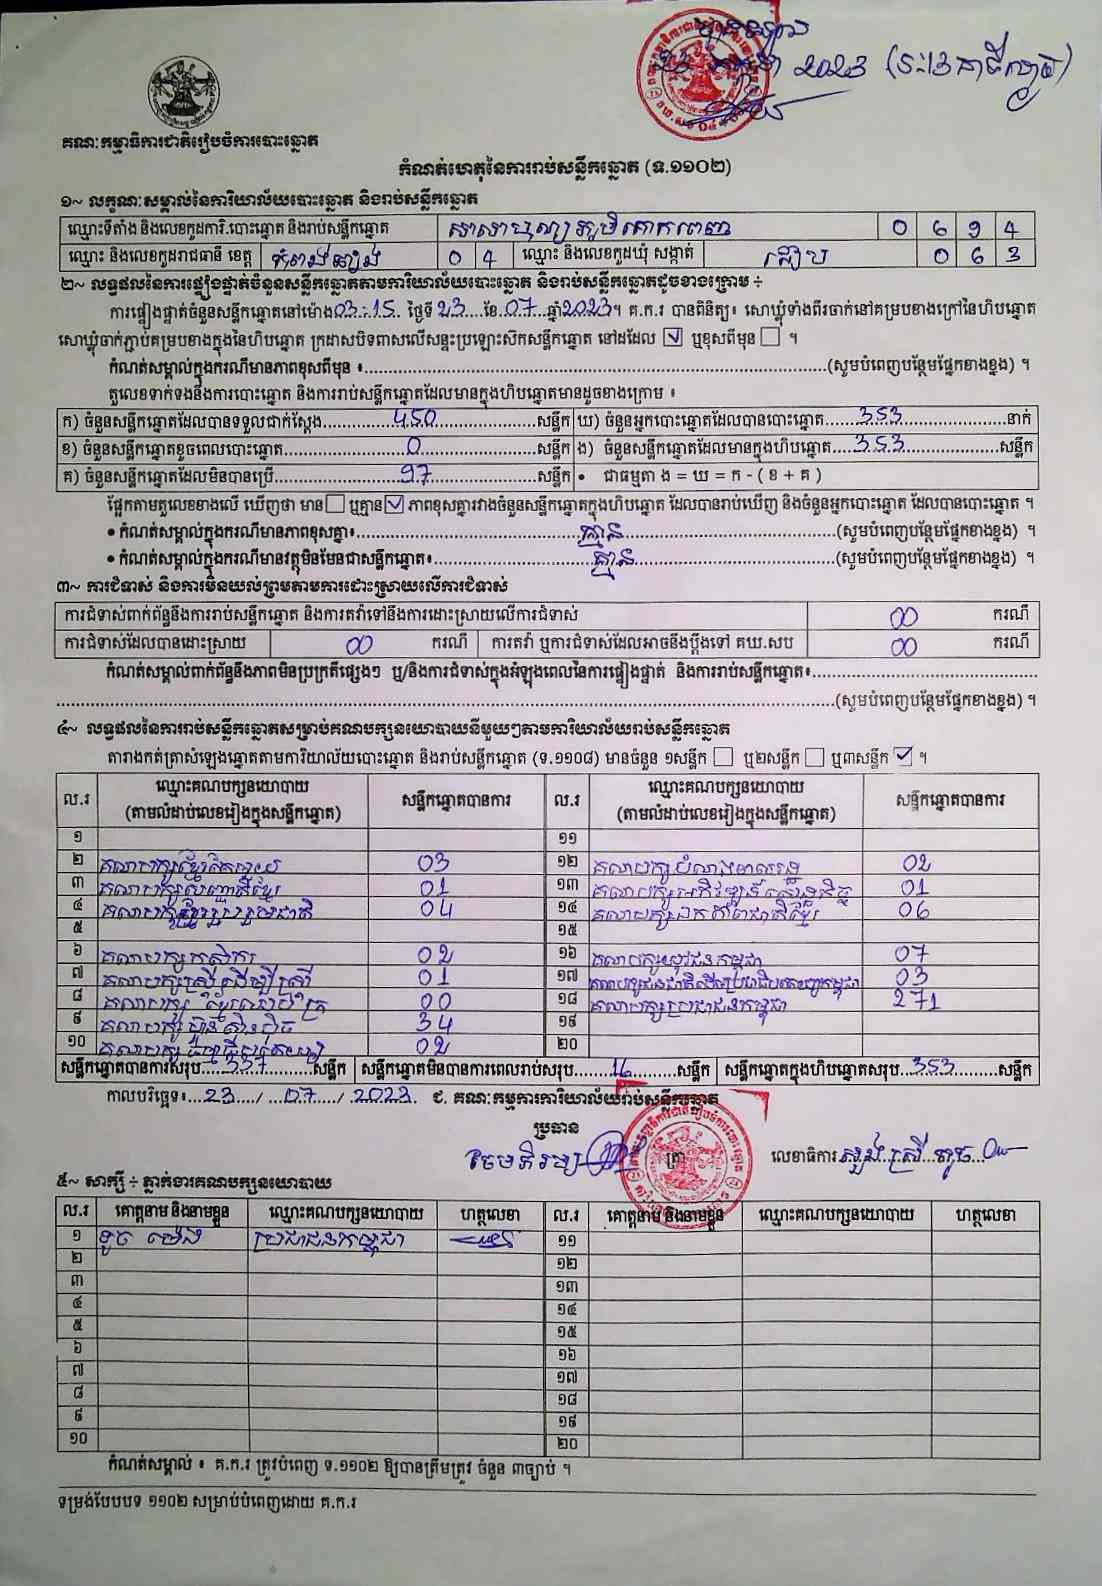 2023
គណៈកម្មាធិការជាតិរៀបចំការបោះឆ្នោត
កំណត់ហេតុនៃការរាប់សន្លឹកឆ្នោត (ទ.១១០២)
១~ លក្ខណៈសម្គាល់នៃការិយាល័យបោះឆ្នោត និងរាប់សន្លឹកឆ្នោត
ឈ្មោះទីតាំង និងលេខកូដការិ.បោះឆ្នោត និងរាប់សន្លឹកឆ្នោត 0 6 9 4
ឈ្មោះ និងលេខកូដរាជធានី ខេត្ត កំពង់ឆ្នាំង 0 4 ឈ្មោះ និងលេខកូដឃុំ សង្កាត់ ជៀប 0 6 3
២~ លទ្ធផលនៃការផ្ទៀងផ្ទាត់ចំនួនសន្លឹកឆ្នោតតាមការិយាល័យបោះឆ្នោត និងរាប់សន្លឹកឆ្នោតដូចខាងក្រោម ÷
ការផ្ទៀងផ្ទាត់ចំនួនសន្លឹកឆ្នោតនៅម៉ោង 03:15 ថ្ងៃទី 23 ខែ 07 ឆ្នាំ 2023។ គ.ក.រ បានពិនិត្យ៖ សោឃ្លុំទាំងពីរចាក់នៅគម្របខាងក្រៅនៃហិបឆ្នោត
សោឃ្លុំចាក់ភ្ជាប់គម្របខាងក្នុងនៃហិបឆ្នោត ក្រដាសបិទពាសលើសន្ទះប្រឡោះស៊កសន្លឹកឆ្នោត នៅដដែល ☑ ឬខុសពីមុន ☐ ។
កំណត់សម្គាល់ក្នុងករណីមានភាពខុសពីមុន ៖ (សូមបំពេញបន្ថែមផ្នែកខាងខ្នង) ។
តួលេខទាក់ទងនឹងការបោះឆ្នោត និងការរាប់សន្លឹកឆ្នោតដែលមានក្នុងហិបឆ្នោតមានដូចខាងក្រោម ៖
ក) ចំនួនសន្លឹកឆ្នោតដែលបានទទួលជាក់ស្តែង 450 សន្លឹក ឃ) ចំនួនអ្នកបោះឆ្នោតដែលបានបោះឆ្នោត 353 នាក់
ខ) ចំនួនសន្លឹកឆ្នោតខូចពេលបោះឆ្នោត 0 សន្លឹក ង) ចំនួនសន្លឹកឆ្នោតដែលមានក្នុងហិបឆ្នោត 353 សន្លឹក
គ) ចំនួនសន្លឹកឆ្នោតដែលមិនបានប្រើ 97 សន្លឹក • ជាធម្មតា ង = ឃ = ក - ( ខ + គ )
ផ្អែកតាមតួលេខខាងលើ ឃើញថា មាន ☐ ឬគ្មាន ☑ ភាពខុសគ្នារវាងចំនួនសន្លឹកឆ្នោតក្នុងហិបឆ្នោត ដែលបានរាប់ឃើញ និងចំនួនអ្នកបោះឆ្នោត ដែលបានបោះឆ្នោត ។
• កំណត់សម្គាល់ក្នុងករណីមានភាពខុសគ្នា៖ គ្មាន (សូមបំពេញបន្ថែមផ្នែកខាងខ្នង) ។
• កំណត់សម្គាល់ក្នុងករណីមានវត្ថុមិនមែនជាសន្លឹកឆ្នោត៖ គ្មាន (សូមបំពេញបន្ថែមផ្នែកខាងខ្នង) ។
៣~ ការជំទាស់ និងការមិនយល់ព្រមតាមការដោះស្រាយលើការជំទាស់
ការជំទាស់ពាក់ព័ន្ធនឹងការរាប់សន្លឹកឆ្នោត និងការតវ៉ាទៅនឹងការដោះស្រាយលើការជំទាស់ 00 ករណី
ការជំទាស់ដែលបានដោះស្រាយ 00 ករណី ការតវ៉ា ឬការជំទាស់ដែលអាចនឹងប្តឹងទៅ គឃ.សប 00 ករណី
កំណត់សម្គាល់ពាក់ព័ន្ធនឹងភាពមិនប្រក្រតីផ្សេងៗ ឬ/និងការជំទាស់ក្នុងអំឡុងពេលនៃការផ្ទៀងផ្ទាត់ និងការរាប់សន្លឹកឆ្នោត៖
(សូមបំពេញបន្ថែមផ្នែកខាងខ្នង) ។
៤~ លទ្ធផលនៃការរាប់សន្លឹកឆ្នោតសម្រាប់គណបក្សនយោបាយនីមួយៗតាមការិយាល័យរាប់សន្លឹកឆ្នោត
តារាងកត់ត្រាសំឡេងឆ្នោតតាមការិយាល័យបោះឆ្នោត និងរាប់សន្លឹកឆ្នោត (ទ.១១០៨) មានចំនួន ១សន្លឹក ☐ ឬ២សន្លឹក ☐ ឬ៣សន្លឹក ☑ ។
ល.រ ឈ្មោះគណបក្សនយោបាយ (តាមលំដាប់លេខរៀងក្នុងសន្លឹកឆ្នោត) សន្លឹកឆ្នោតបានការ ល.រ ឈ្មោះគណបក្សនយោបាយ (តាមលំដាប់លេខរៀងក្នុងសន្លឹកឆ្នោត) សន្លឹកឆ្នោតបានការ
១ ១១
២ គណបក្សខ្មែរតែមួយ 03 ១២ គណបក្ស 02
៣ គណបក្សសញ្ជាតិខ្មែរ 01 ១៣ គណបក្សអភិវឌ្ឍន៍សេដ្ឋកិច្ច 01
៤ គណបក្សខ្មែររួបរួមជាតិ 04 ១៤ គណបក្សឯកភាពជាតិខ្មែរ 06
៥ ១៥
៦ គណបក្សកសិករ 02 ១៦ គណបក្សយុវជនកម្ពុជា 07
៧ គណបក្សស្រីដើម្បីស្រី 01 ១៧ គណបក្ស 03
៨ គណបក្ស 00 ១៨ គណបក្សប្រជាជនកម្ពុជា 271
៩ គណបក្សហ៊្វុនស៊ិនប៉ិច 34 ១៩
១០ គណបក្ស 02 ២០
សន្លឹកឆ្នោតបានការសរុប 337 សន្លឹក សន្លឹកឆ្នោតមិនបានការពេលរាប់សរុប 16 សន្លឹក សន្លឹកឆ្នោតក្នុងហិបឆ្នោតសរុប 353 សន្លឹក
កាលបរិច្ឆេទ៖ 23 / 07 / 2023 ជ. គណៈកម្មការការិយាល័យរាប់សន្លឹកឆ្នោត
ប្រធាន
ត្រា លេខាធិការ
៥~ សាក្សី ÷ ភ្នាក់ងារគណបក្សនយោបាយ
ល.រ គោត្តនាម និងនាមខ្លួន ឈ្មោះគណបក្សនយោបាយ ហត្ថលេខា ល.រ គោត្តនាម និងនាមខ្លួន ឈ្មោះគណបក្សនយោបាយ ហត្ថលេខា
១ ទូច ម៉េង ប្រជាជនកម្ពុជា ១១
២ ១២
៣ ១៣
៤ ១៤
៥ ១៥
៦ ១៦
៧ ១៧
៨ ១៨
៩ ១៩
១០ ២០
កំណត់សម្គាល់ ៖ គ.ក.រ ត្រូវបំពេញ ទ.១១០២ ឱ្យបានត្រឹមត្រូវ ចំនួន ៣ច្បាប់ ។
ទម្រង់បែបបទ ១១០២ សម្រាប់បំពេញដោយ គ.ក.រ